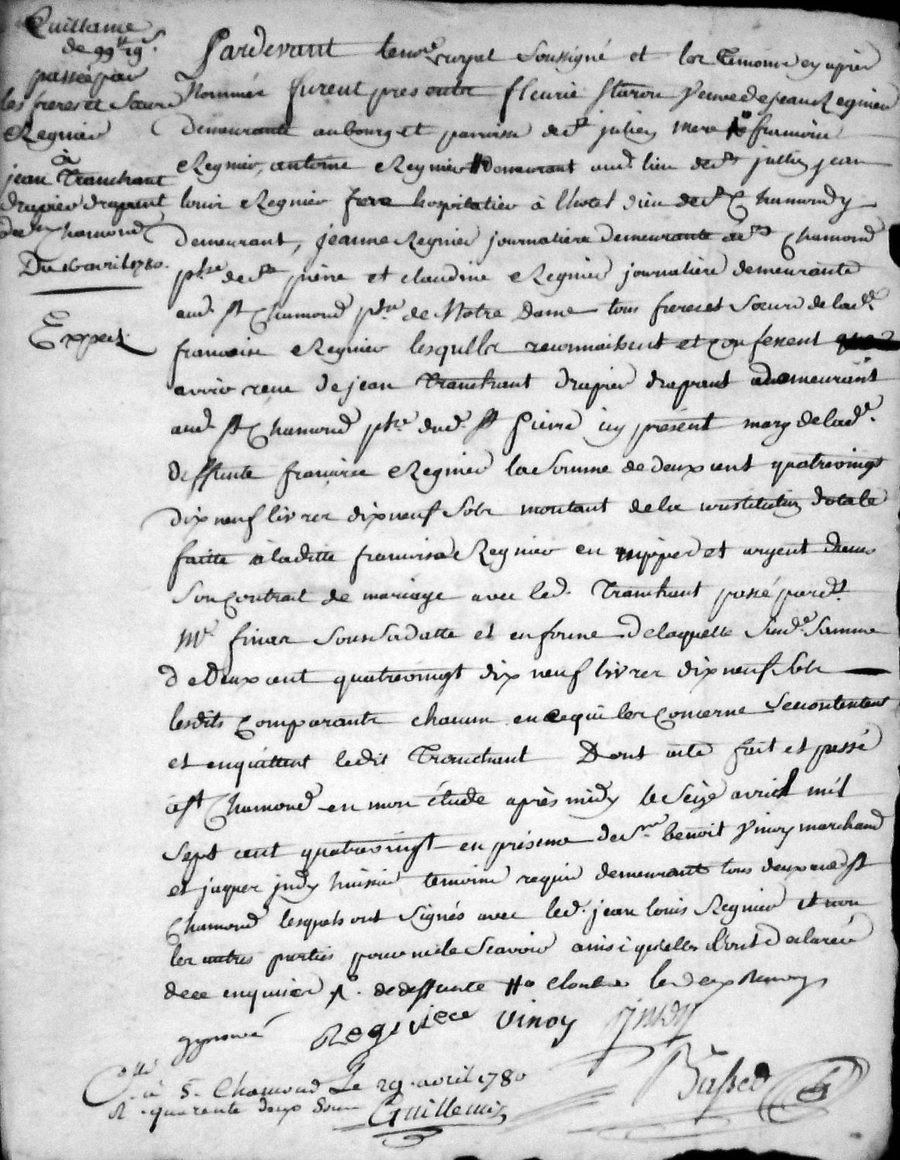 Quittance
de 299# 19s
passée par
les freres et Sœurs
Regnier
à
jean Tranchant
drapier drapant
de St Chamond
Du 16 avril 1780.
Expet.
Pardevant le nore. royal Soussigné et les temoins cy après
Nommés furent presents fleurie Staron Veuve de jean Regnier
demeurante au bourg et parroisse de St julien mere francoise
Regnier, antoine Regnier # demeurant aud. lieu de St jullien jean
louis Regnier frere hospitalier à l'hotel dieu de St Chamond y
demeurant, jeanne Regnier journaliere demeurante de St Chamond
psse de St pierre et claudine Regnier journaliere demeurante
aud. St Chamond psse de Notre Dame tous freres et Sœurs de lade.
francoise Regnier lesquells reconnaissent et confessent
avoir reçu de jean Tranchant drapier drapant demeurant
aud. St Chamond psse dud. St Pierre icy présent mary de lade.
deffunte francoise Regnier la somme de deux cent quatrevingt
dix neuf livres dix neuf Sols montant de la constitution dotale
faitte à laditte francoise Regnier en nippes et argent dans
Son Contrat de mariage avec led. Tranchant passé pardt.
Me finaz Sous Sa datte et en forme de laquelle Susde. Somme
de Deux cent quatrevingt dix neuf livres dix neuf Sols
lesdits Comparants chacun en ce qui les Concerne Se contentent
et en quittent ledit Tranchant Dont acte fait et passé
à St Chamond en mon étude après midy le Seize avril mil
Sept cent quatrevingt en présence de Sr benoit Vinoy marchand
et jaques jndy huissier temoins requis demeurants tous deux aud. St
Chamond lesquels ont Signés avec led. jean louis Regnier et non
les autres parties pour ne le Scavoir ainsi qu'elles l'ont declarée
de ce enquises de deffunte
approuvé
Regniere Vinoy jndy
Cllé à St. Chamond Le 29 avril 1780
R. quarente deux Sous Guillemin